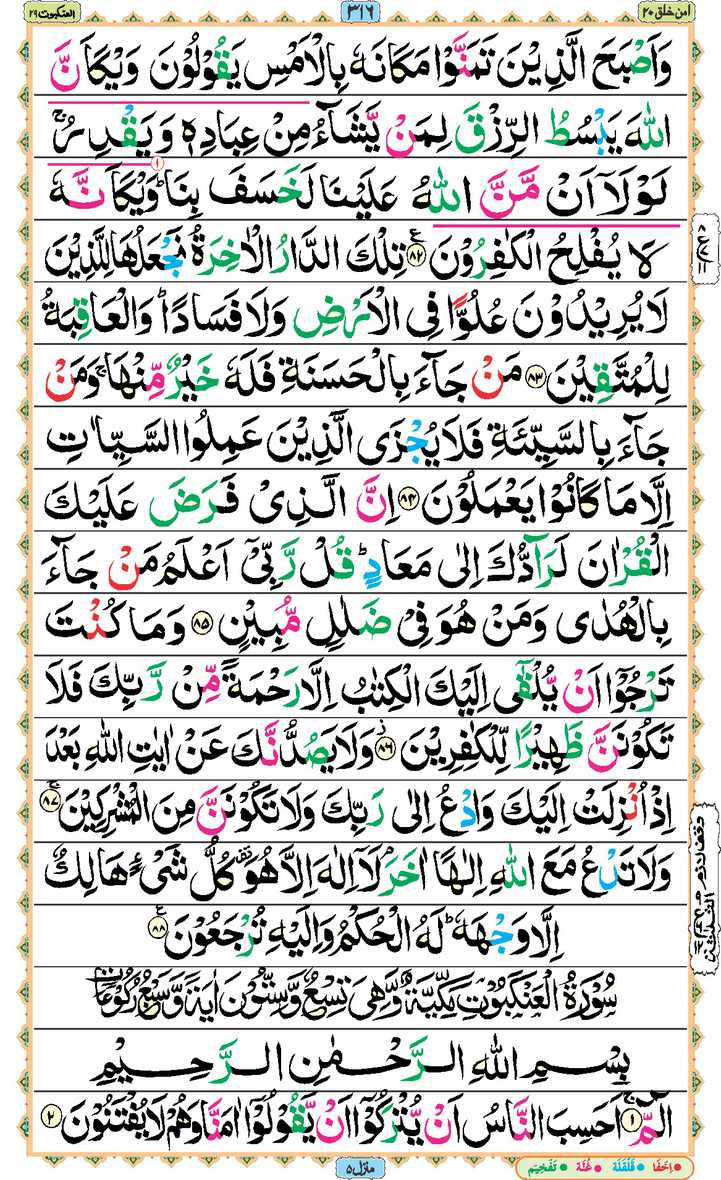 امن خلق ٢٠
٣١٦
العنكبوت ٢٩
وَاَصْبَحَ الَّذِيْنَ تَمَنَّوْا مَكَانَهٗ بِالْاَمْسِ يَقُوْلُوْنَ وَيْكَاَنَّ
اللّٰهَ يَبْسُطُ الرِّزْقَ لِمَنْ يَّشَآءُ مِنْ عِبَادِهٖ وَيَقْدِرُ ۚ
لَوْلَاۤ اَنْ مَّنَّ اللّٰهُ عَلَيْنَا لَخَسَفَ بِنَا ؕ وَيْكَاَنَّهٗ
لَا يُفْلِحُ الْكٰفِرُوْنَ ﴿٨٢﴾ تِلْكَ الدَّارُ الْاٰخِرَةُ نَجْعَلُهَا لِلَّذِيْنَ
لَا يُرِيْدُوْنَ عُلُوًّا فِى الْاَرْضِ وَلَا فَسَادًا ؕ وَالْعَاقِبَةُ
لِلْمُتَّقِيْنَ ﴿٨٣﴾ مَنْ جَآءَ بِالْحَسَنَةِ فَلَهٗ خَيْرٌ مِّنْهَا ۚ وَمَنْ
جَآءَ بِالسَّيِّئَةِ فَلَا يُجْزَى الَّذِيْنَ عَمِلُوا السَّيِّاٰتِ
اِلَّا مَا كَانُوْا يَعْمَلُوْنَ ﴿٨٤﴾ اِنَّ الَّذِىْ فَرَضَ عَلَيْكَ
الْقُرْاٰنَ لَرَآدُّكَ اِلٰى مَعَادٍ ؕ قُلْ رَّبِّىْۤ اَعْلَمُ مَنْ جَآءَ
بِالْهُدٰى وَمَنْ هُوَ فِىْ ضَلٰلٍ مُّبِيْنٍ ﴿٨٥﴾ وَمَا كُنْتَ
تَرْجُوْۤا اَنْ يُّلْقٰٓى اِلَيْكَ الْكِتٰبُ اِلَّا رَحْمَةً مِّنْ رَّبِّكَ فَلَا
تَكُوْنَنَّ ظَهِيْرًا لِّلْكٰفِرِيْنَ ﴿٨٦﴾ وَلَا يَصُدُّنَّكَ عَنْ اٰيٰتِ اللّٰهِ بَعْدَ
اِذْ اُنْزِلَتْ اِلَيْكَ وَادْعُ اِلٰى رَبِّكَ وَلَا تَكُوْنَنَّ مِنَ الْمُشْرِكِيْنَ ﴿٨٧﴾
وَلَا تَدْعُ مَعَ اللّٰهِ اِلٰهًا اٰخَرَ ۘ لَاۤ اِلٰهَ اِلَّا هُوَ ۟ كُلُّ شَىْءٍ هَالِكٌ
اِلَّا وَجْهَهٗ ؕ لَهُ الْحُكْمُ وَاِلَيْهِ تُرْجَعُوْنَ ﴿٨٨﴾
سُوْرَةُ الْعَنْكَبُوْتِ مَكِّيَّةٌ وَّهِىَ تِسْعٌ وَّسِتُّوْنَ اٰيَةً وَّسَبْعُ رُكُوْعَاتٍ
بِسْمِ اللّٰهِ الرَّحْمٰنِ الرَّحِيْمِ
الٓمّٓ ﴿١﴾ اَحَسِبَ النَّاسُ اَنْ يُّتْرَكُوْۤا اَنْ يَّقُوْلُوْۤا اٰمَنَّا وَهُمْ لَا يُفْتَنُوْنَ ﴿٢﴾
منزل ٥
اِخفَا قَلْقَلَة غُنَّة تَفْخِيْم